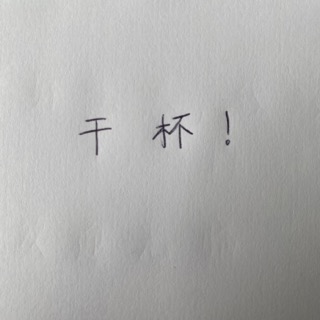 干杯！